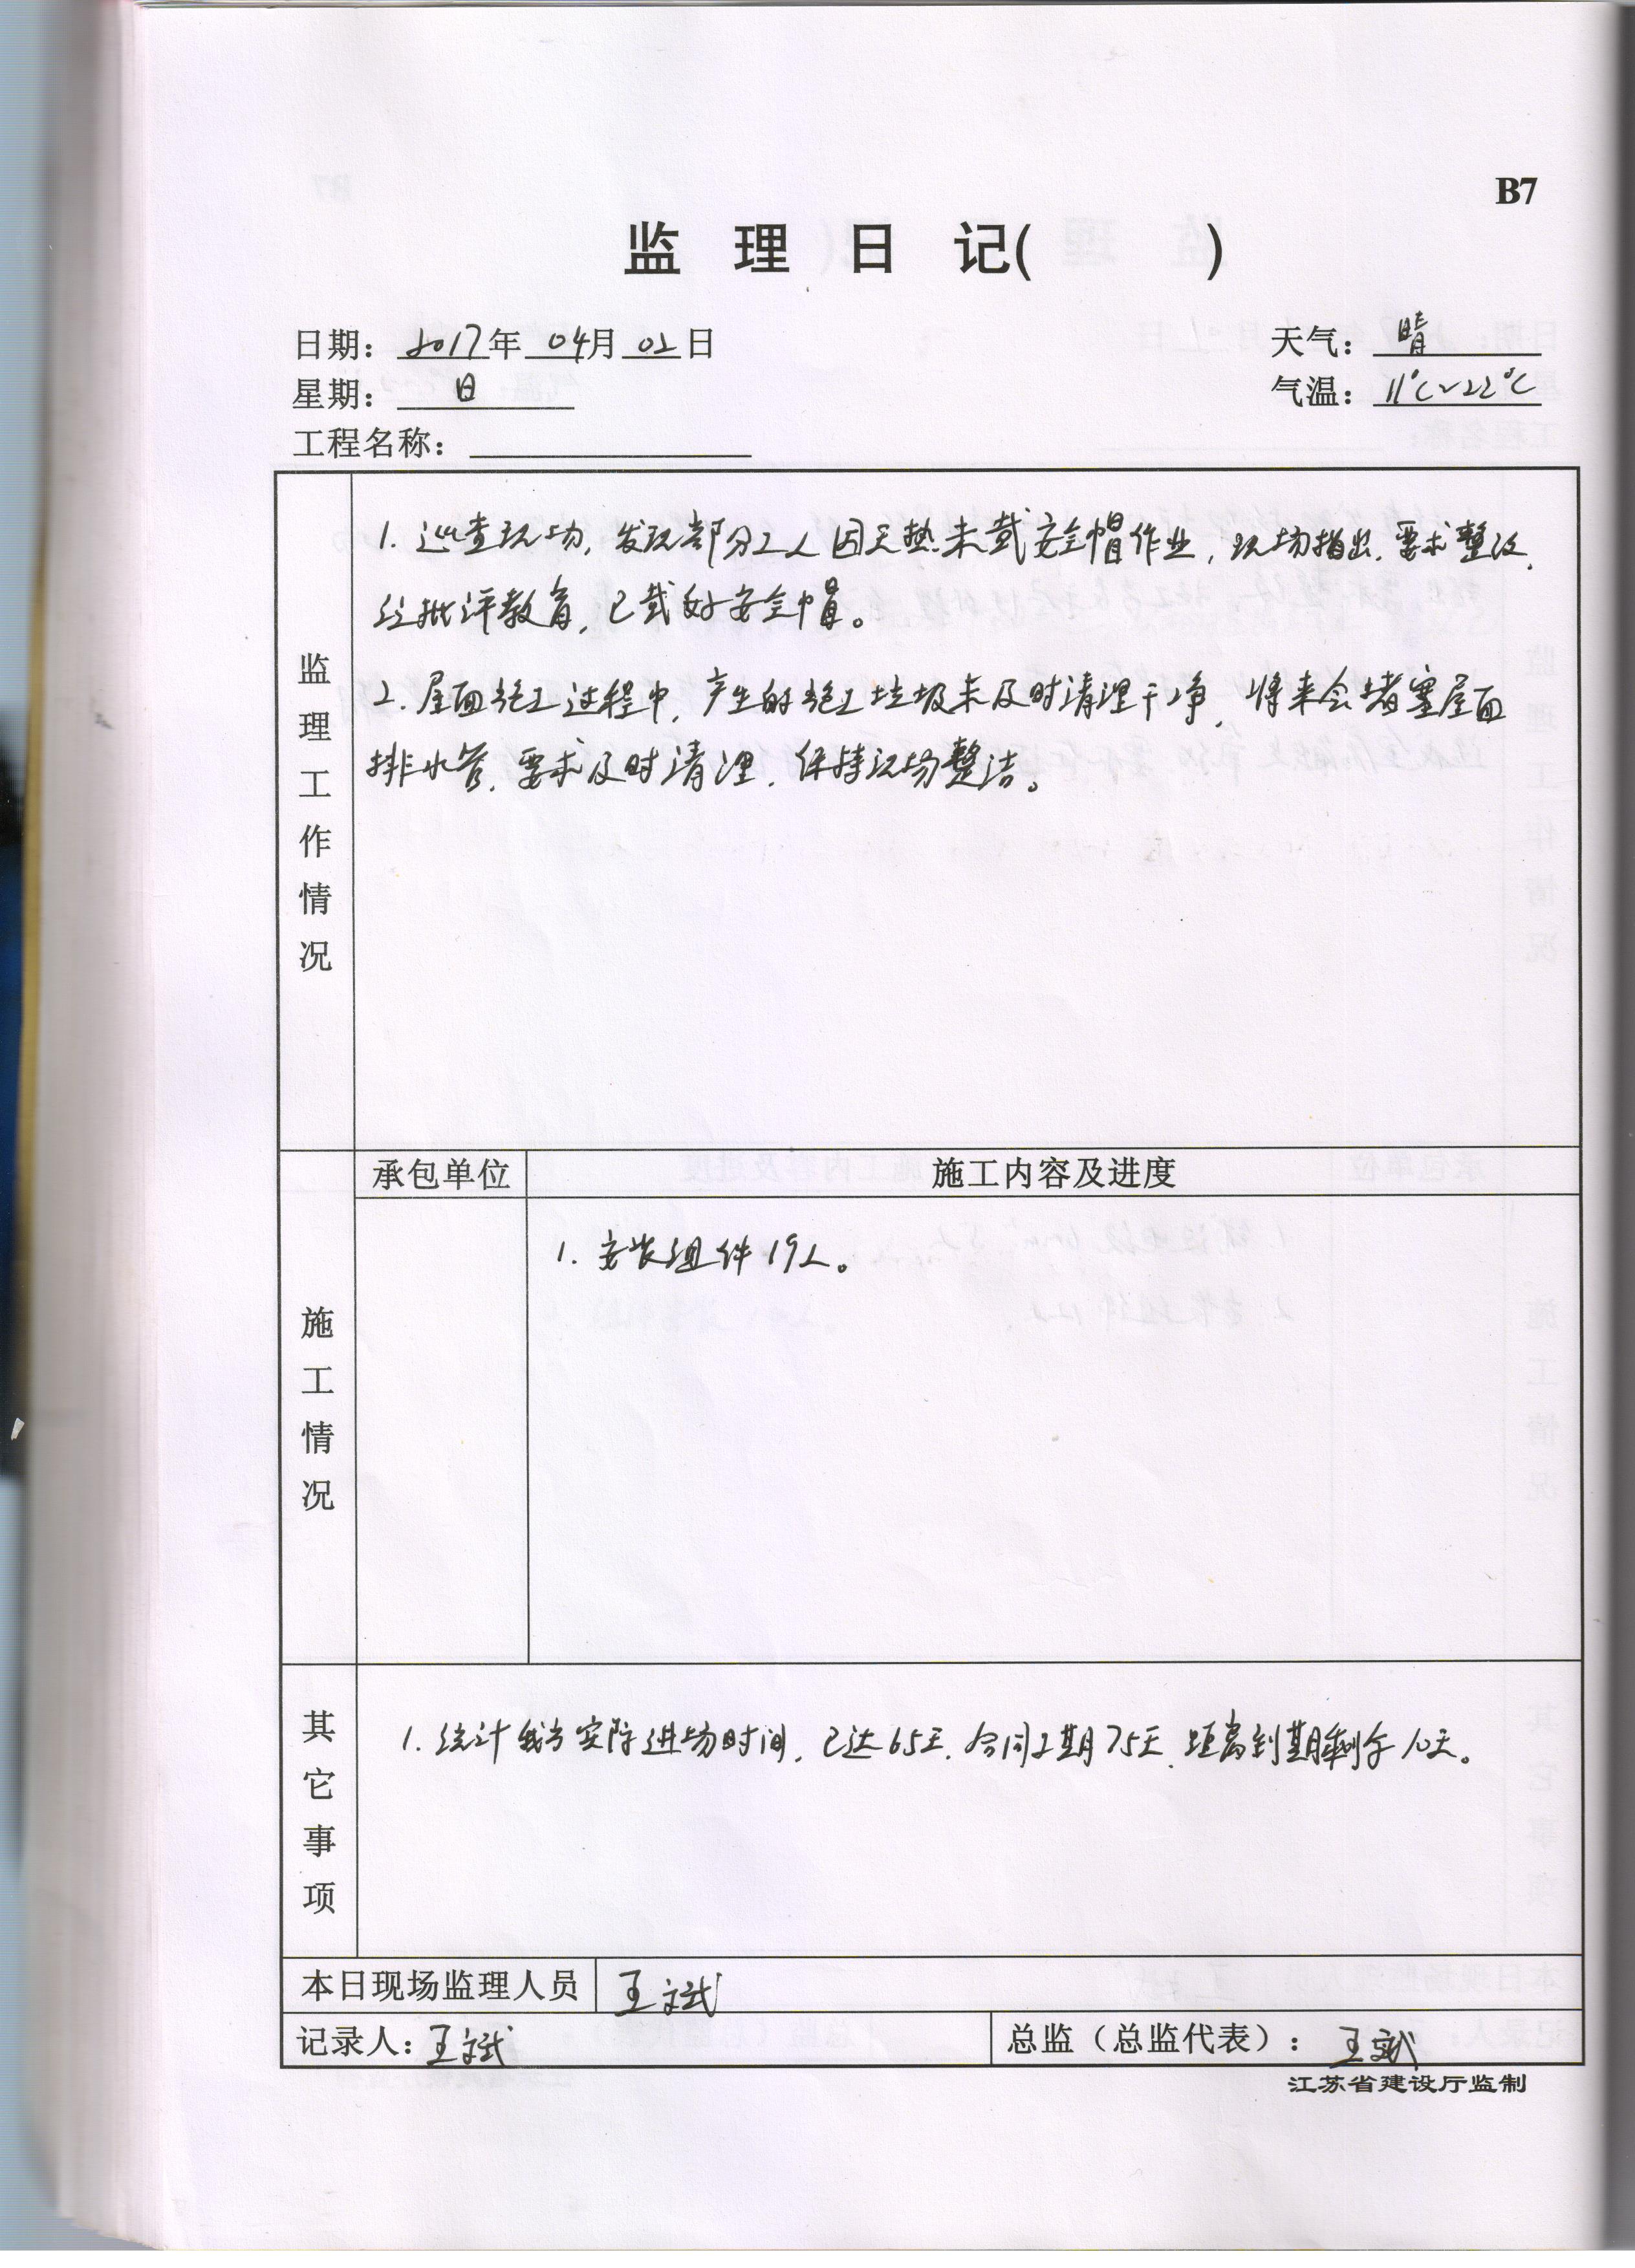 B7
监 理 日 记( )
日期: 2017年 04月 02日 天气: 晴
星期: 日 气温: 11℃~22℃
工程名称:
监理工作情况
1. 巡查现场, 发现部分工人因天热未戴安全帽作业, 现场指出, 要求整改,
经批评教育, 已戴好安全帽。
2. 屋面施工过程中, 产生的施工垃圾未及时清理干净, 将来会堵塞屋面
排水管, 要求及时清理, 保持现场整洁。
承包单位 施工内容及进度
施工情况
1. 安装组件19人。
其它事项
1. 统计我方实际进场时间, 已达65天, 合同工期75天, 距离到期剩余10天。
本日现场监理人员 王斌
记录人: 王斌 总监(总监代表): 王斌
江苏省建设厅监制